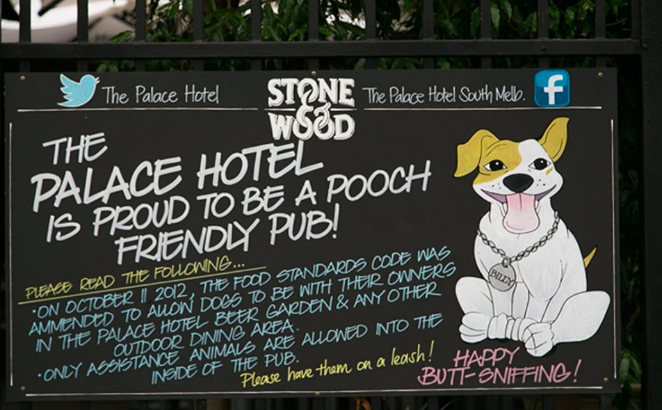 The Palace Hotel
STONE
&
WOOD
The Palace Hotel South Melb.
f
THE
PALACE HOTEL
IS PROUD TO BE A POOCH
FRIENDLY PUB!
PLEASE READ THE FOLLOWING...
·ON OCTOBER 11 2012, THE FOOD STANDARDS CODE WAS
AMMENDED TO ALLOW DOGS TO BE WITH THEIR OWNERS
IN THE PALACE HOTEL BEER GARDEN & ANY OTHER
OUTDOOR DINING AREA.
·ONLY ASSISTANCE ANIMALS ARE ALLOWED INTO THE
INSIDE OF THE PUB.
Please have them on a leash!
BILLY
HAPPY
BUTT-SNIFFING!